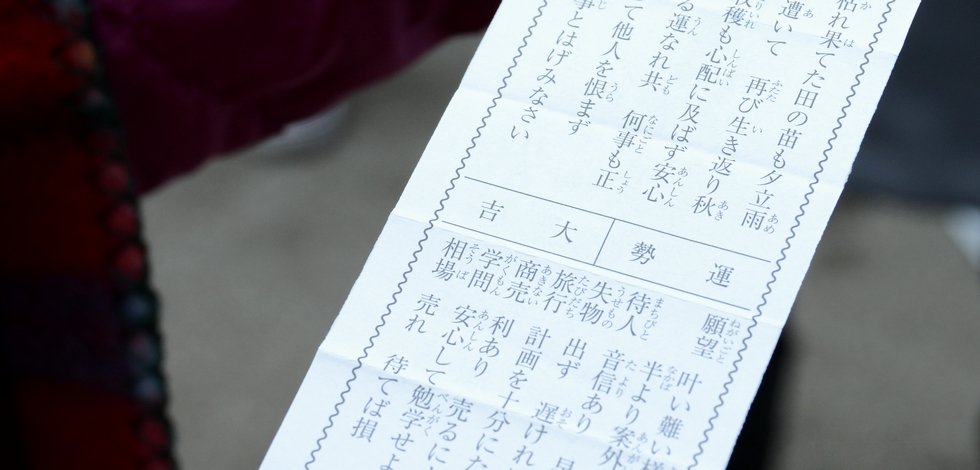 枯れ果てた田の苗も夕立雨
遭いて 再び生き返り秋
穫も心配に及ばず安心
る運なれ共 何事も正
て他人を恨まず
事とはげみなさい
運勢
大吉
願望 叶い難い様
半より案外
待人 音信あり
失物 出ず 遅けれ
旅行 計画を十分にた
商売 利あり 売るに
学問 安心して勉学せよ
相場 売れ 待てば損